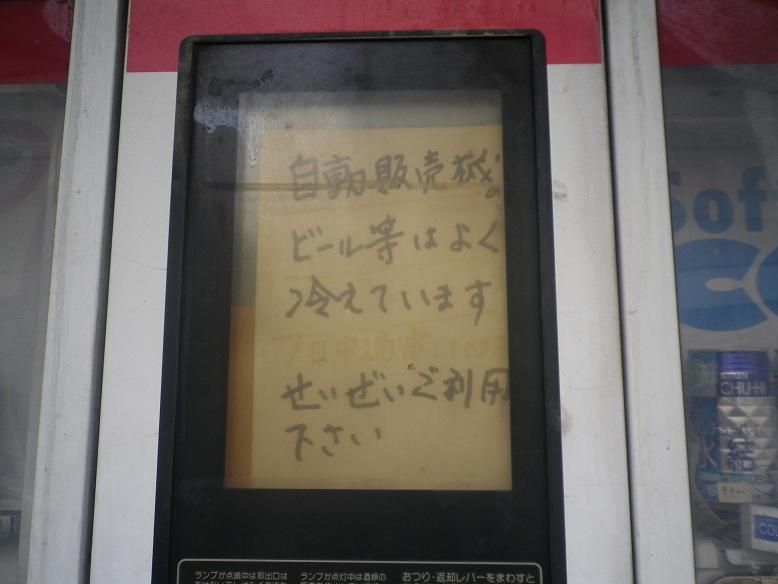 自動販売機の
ビール等はよく
冷えています
せいぜいご利用
下さい
Sof
CHU-HI
氷結
ランプが点滅中は取出口は
ランプが点灯中は酒類の
おつり・返却レバーをまわすと